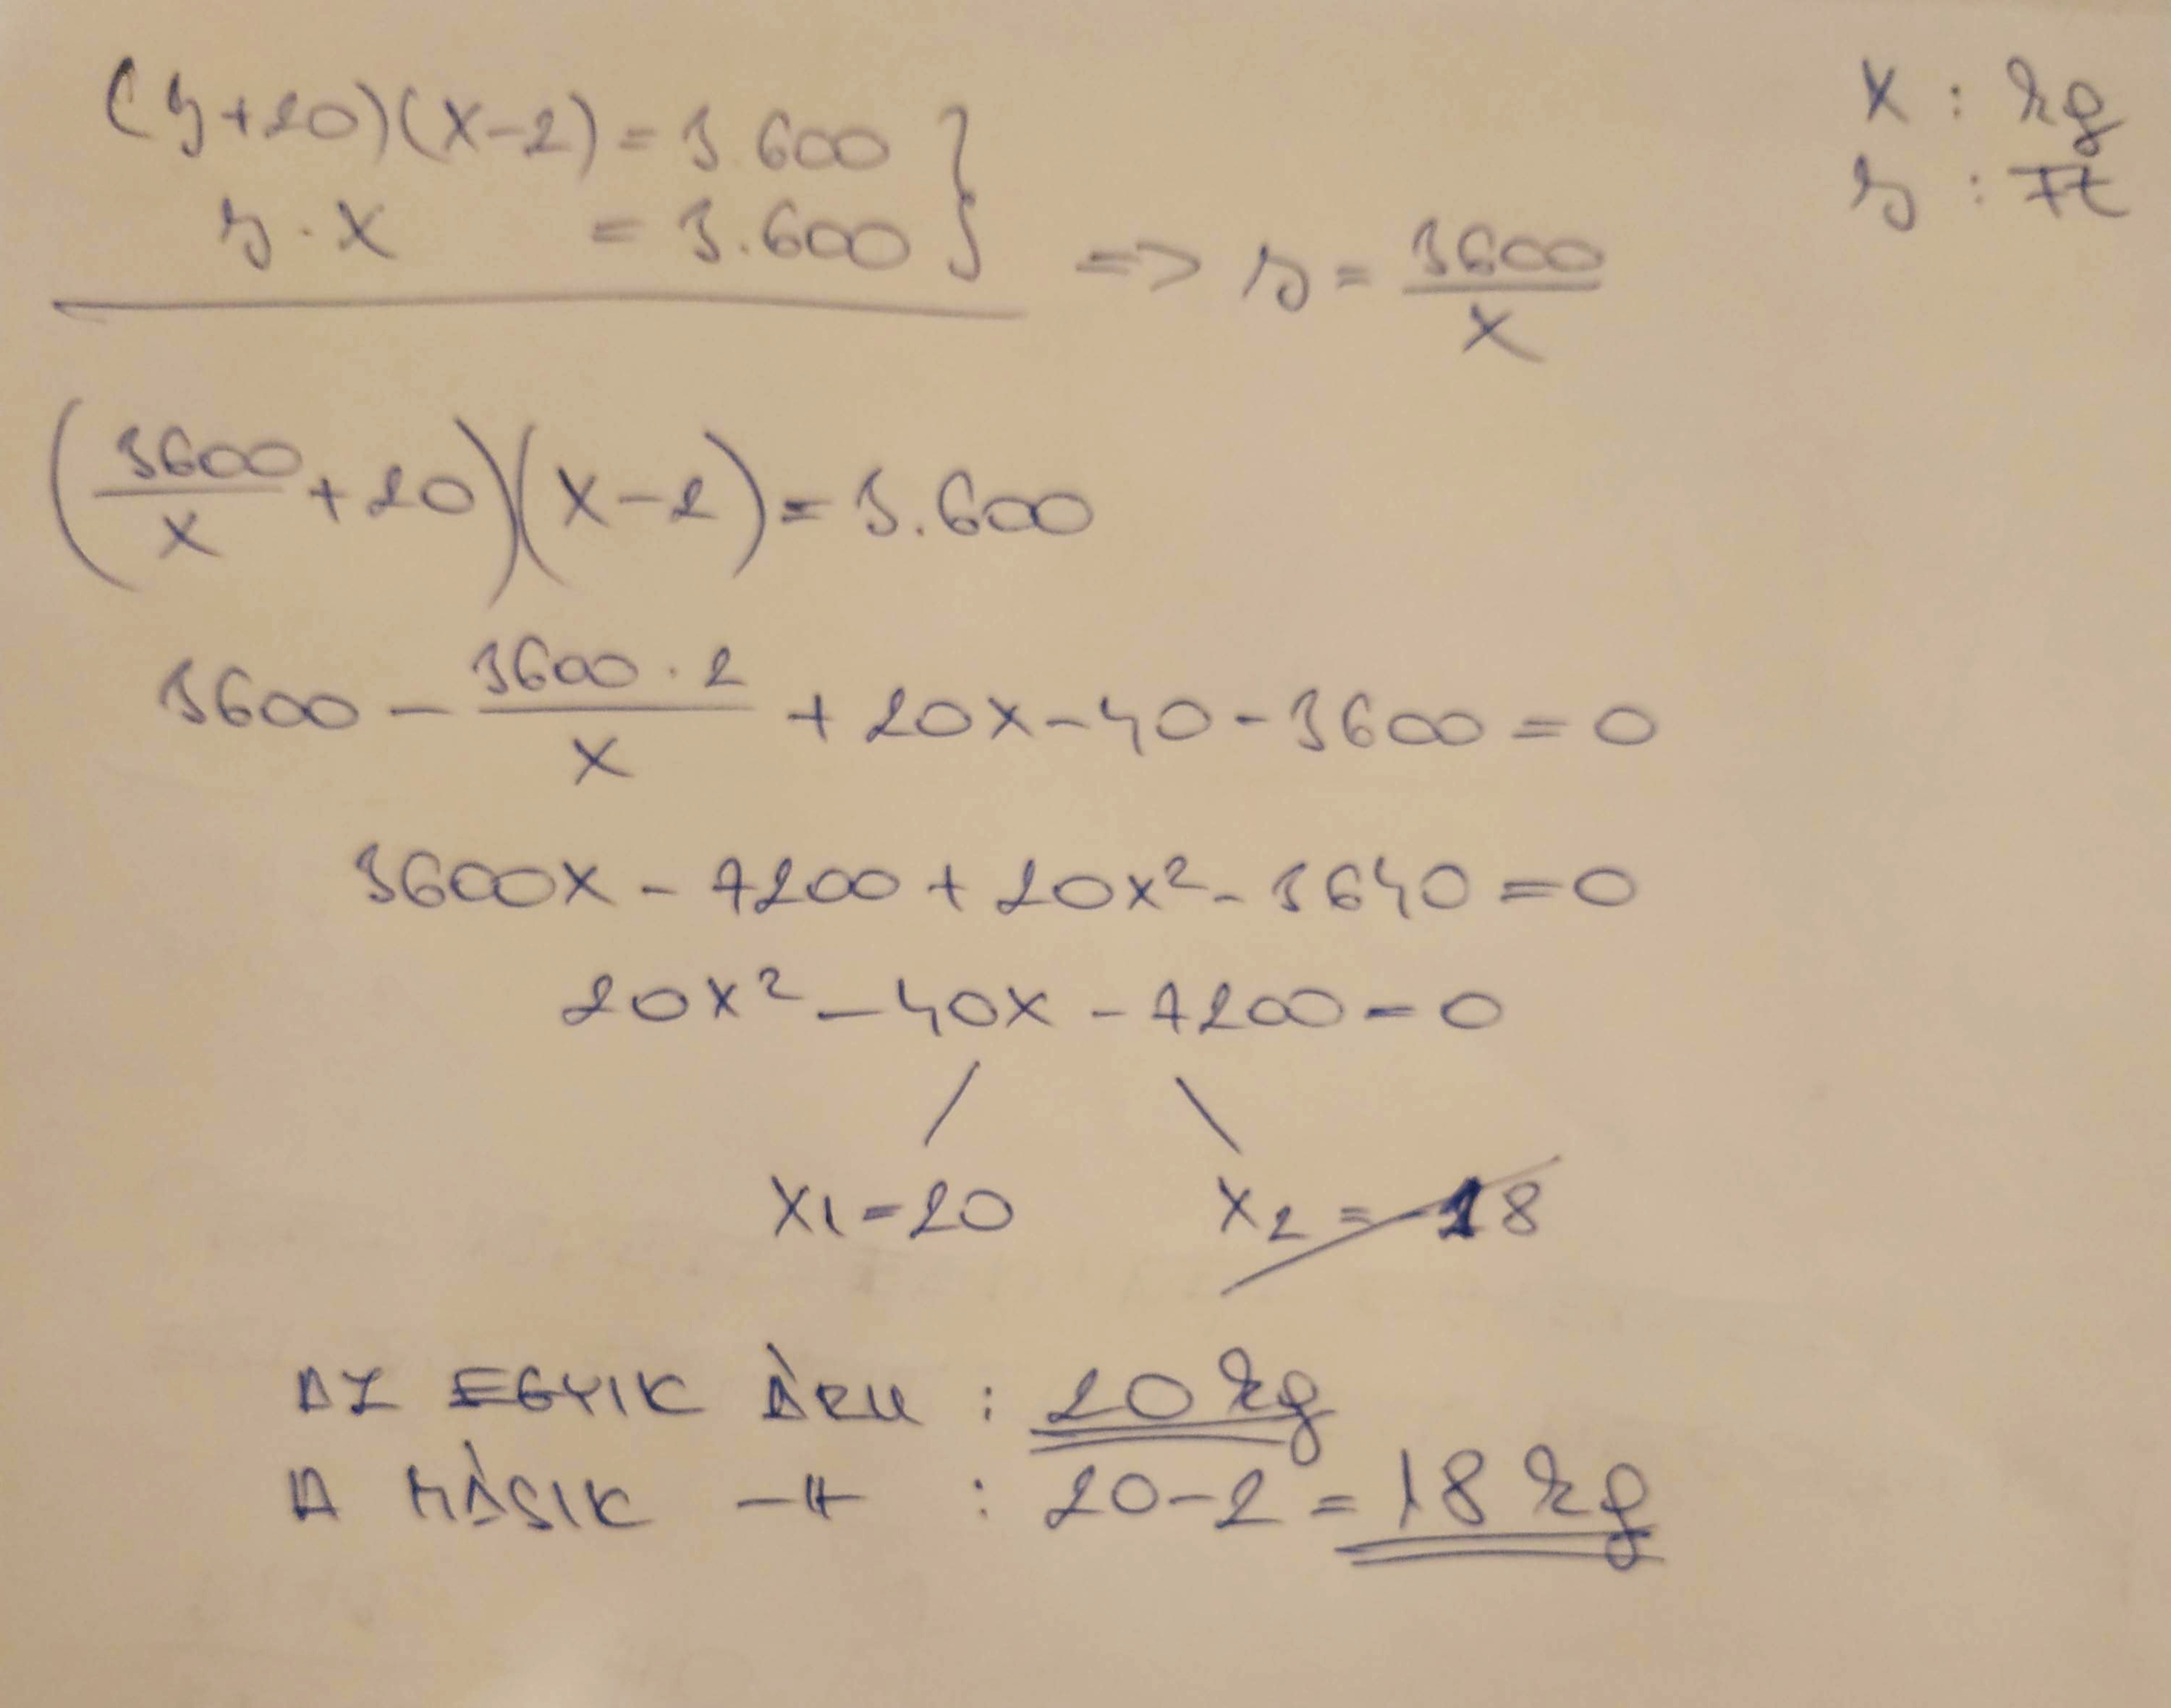 (y+20)(x-2) = 3.600
x : kg
y · x = 3.600 } => y = 3600/x
y : Ft
(3600/x + 20)(x-2) = 3.600
3600 - 3600·2/x + 20x - 40 - 3600 = 0
3600x - 7200 + 20x² - 3640 = 0
20x² - 40x - 7200 = 0
x1 = 20 x2 = -18
AZ EGYIK ÁRU : 20 kg
A MÁSIK -II- : 20-2 = 18 kg